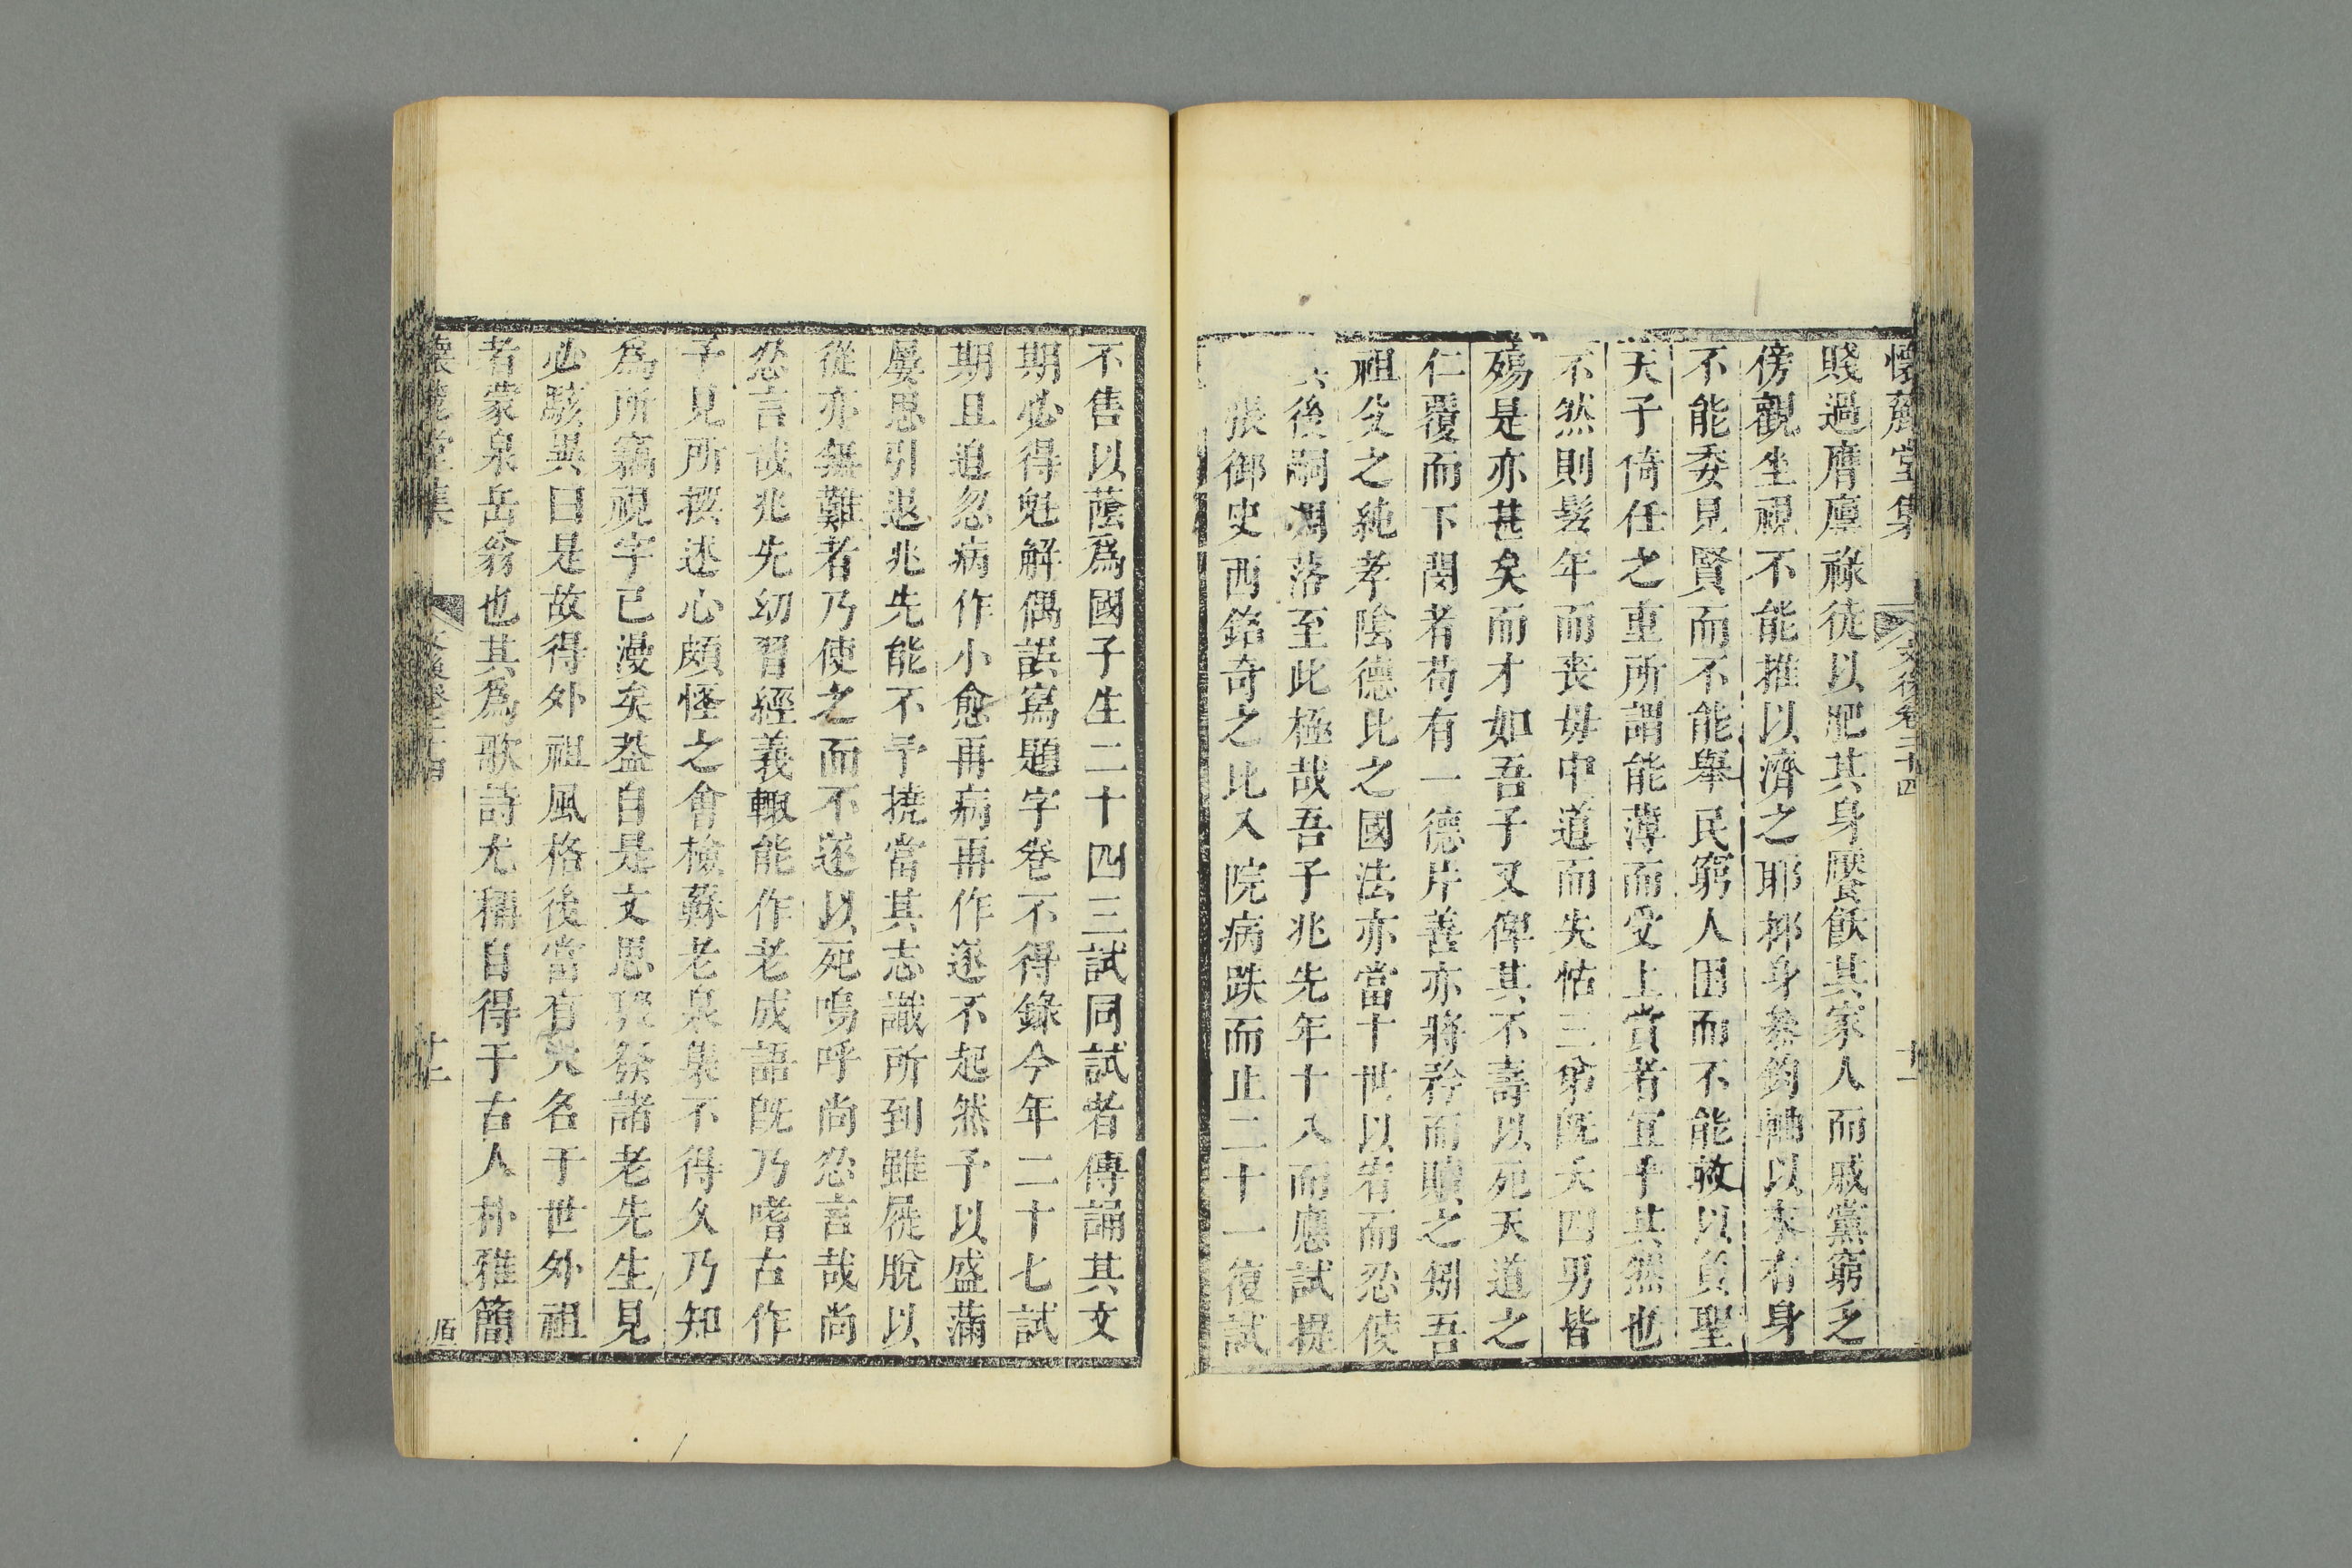 懷麓堂集 文後卷二十四 十一
賤過膺廩祿徒以肥其身饜飫其家人而戚黨窮乏
傍觀坐視不能推以濟之耶抑身叅鈞軸以來有身
不能委見賢而不能舉民窮人困而不能救以負聖
天子倚任之重所謂能薄而受上賞者宜乎其然也
不然則髮年而喪毋中道而失怙三弟既夭四男皆
殤是亦甚矣而才如吾子又俾其不壽以死天道之
仁覆而下閔者苟有一德片善亦將矜而贖之矧吾
祖父之純孝隂德比之國法亦當十世以宥而忍使
其後嗣凋落至此極哉吾子兆先年十入而應試提
張御史西銘奇之比入院病跌而止二十一復試
不售以蔭爲國子生二十四三試同試者傳誦其文
期必得魁解偶誤寫題字卷不得錄今年二十七試
期且迫忽病作小愈再病再作遂不起然予以盛滿
屢思引退兆先能不予撓當其志識所到雖屣脫以
從亦無難者乃使之而不遂以死嗚呼尚忍言哉尚
忍言哉兆先幼習經義輙能作老成語旣乃嗜古作
子見所撰述心頗怪之會檢蘇老泉集不得久乃知
爲所竊視字已漫矣葢自是文思發諸老先生見
必駭異曰是故得外祖風格後當有大名于世外祖
者蒙泉岳翁也其爲歌詩尤稱自得于古人朴雅簡
懷麓堂集 文後卷二十四 十二